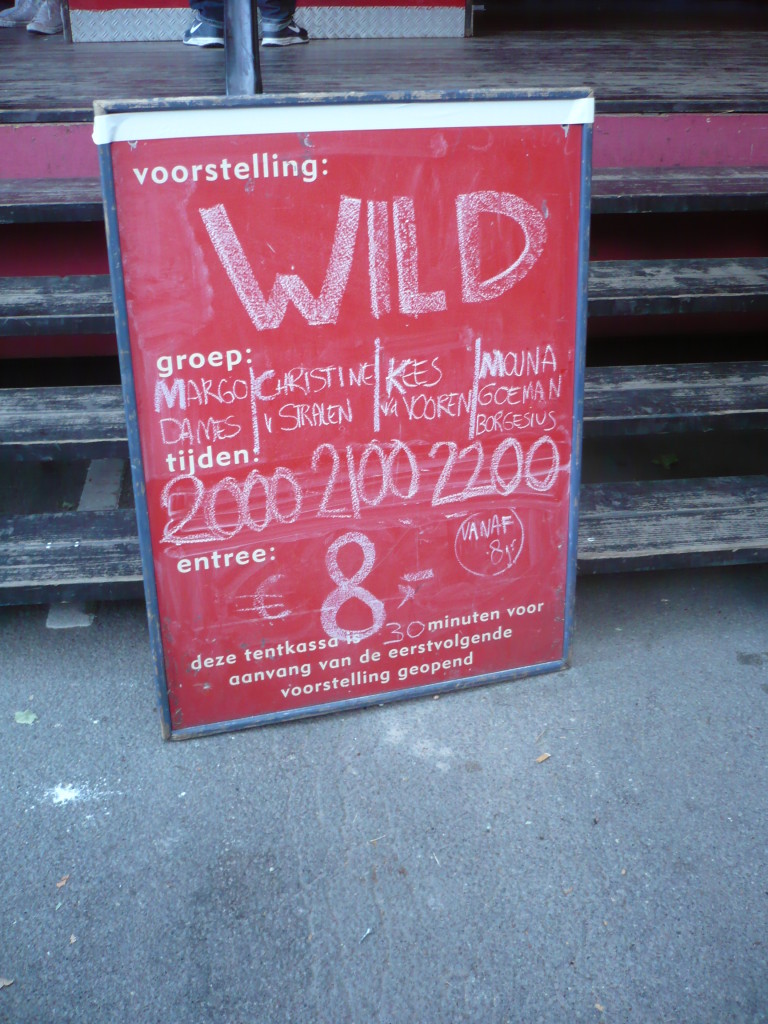 voorstelling:
WILD
groep:
MARGO DAMES | CHRISTINE v STRALEN | KEES v/a VOOREN | MOUNA GOEMAN BORGESIUS
tijden:
2000 2100 2200
entree:
€ 8,-
VANAF 8 jr
deze tentkassa is 30 minuten voor
aanvang van de eerstvolgende
voorstelling geopend